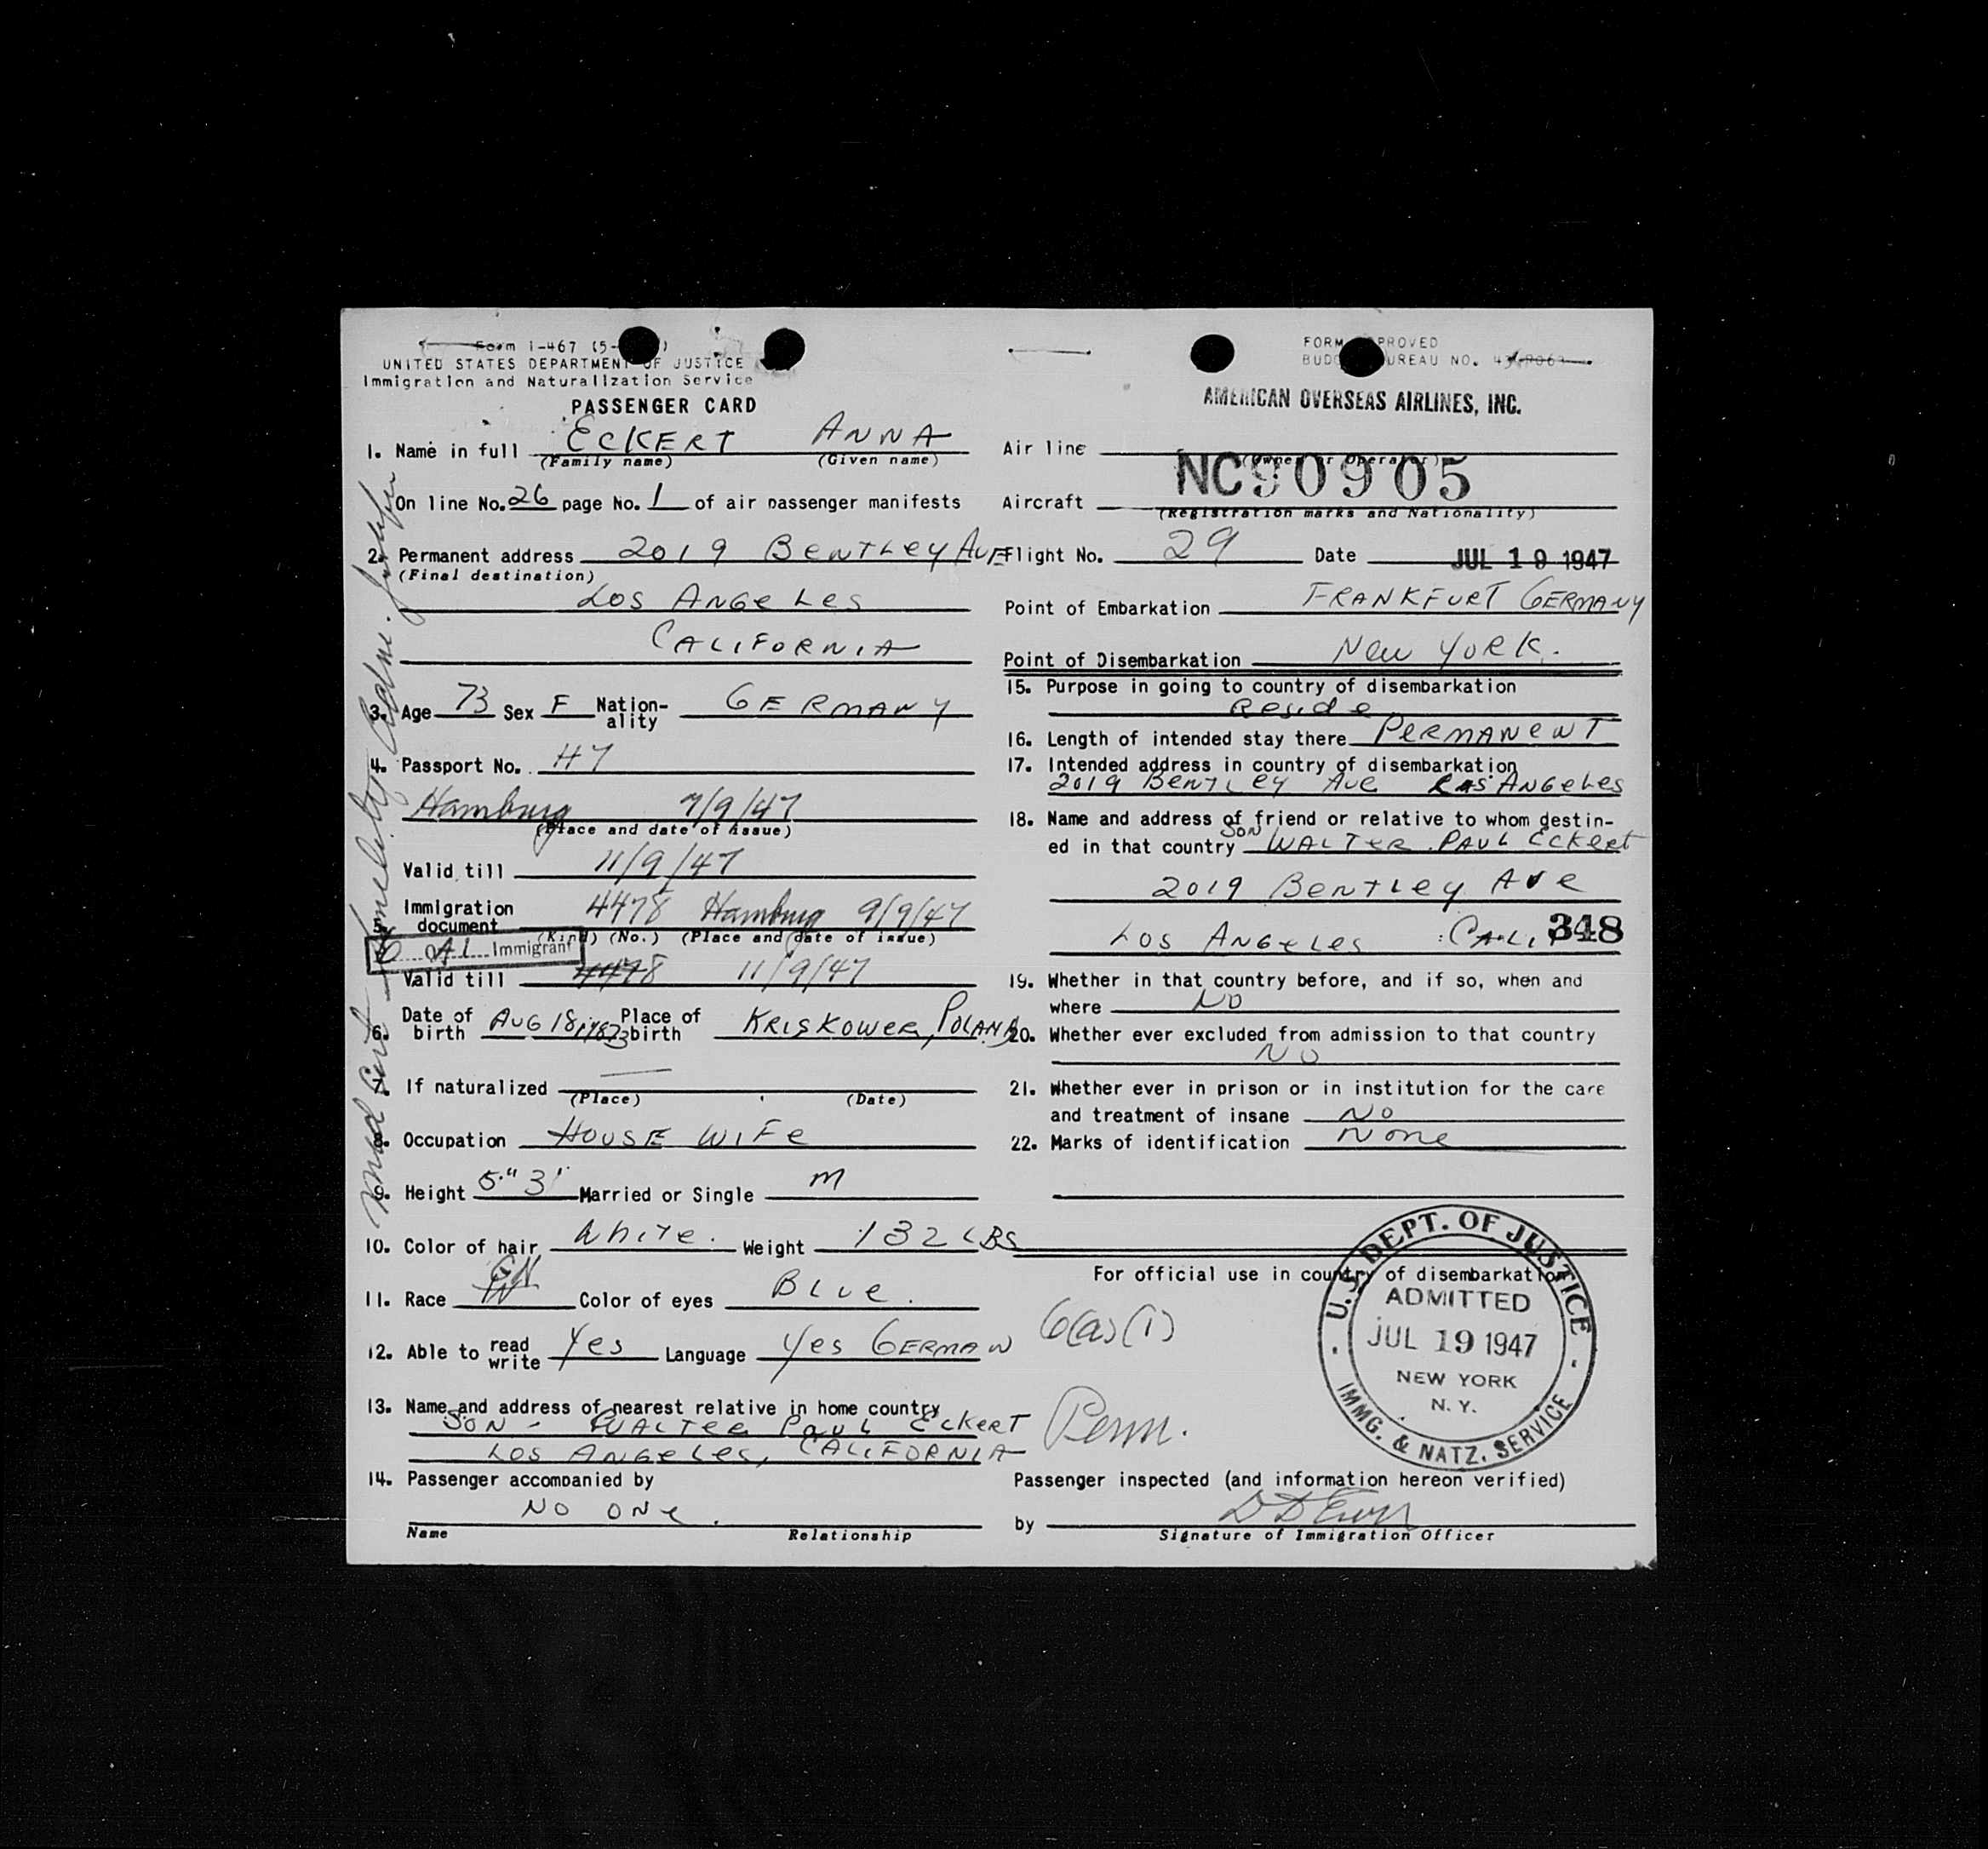 Form I-467 (5-
UNITED STATES DEPARTMENT OF JUSTICE
Immigration and Naturalization Service
PASSENGER CARD
1. Name in full ECKERT ANNA
(Family name) (Given name)
On line No. 26 page No. 1 of air passenger manifests
2. Permanent address 2019 BENTLEY AVE
(Final destination)
LOS ANGELES
CALIFORNIA
3. Age 73 Sex F Nation-ality GERMANY
4. Passport No. 47
Hamburg 7/9/47
(Place and date of issue)
Valid till 11/9/47
5. Immigration document 4478 Hamburg 9/9/47
(Kind) (No.) (Place and date of issue)
Immigrant
Valid till 4478 11/9/47
6. Date of birth AUG 18, 1873 Place of birth KRISKOWER, POLAND
7. If naturalized —
(Place) (Date)
8. Occupation HOUSE WIFE
9. Height 5" 3' Married or Single M
10. Color of hair White. Weight 132 LBS
11. Race Color of eyes BLUE.
12. Able to read write Yes Language Yes GERMAN
13. Name and address of nearest relative in home country
SON - WALTER PAUL ECKERT
LOS ANGELES, CALIFORNIA
14. Passenger accompanied by
NO ONE.
Name Relationship
Med Cert
FORM APPROVED
BUDGET BUREAU NO.
AMERICAN OVERSEAS AIRLINES, INC.
Air line
(Owner or Operator)
Aircraft NC90905
(Registration marks and Nationality)
Flight No. 29 Date JUL 19 1947
Point of Embarkation FRANKFURT GERMANY
Point of Disembarkation NEW YORK.
15. Purpose in going to country of disembarkation
Reside
16. Length of intended stay there PERMANENT
17. Intended address in country of disembarkation
2019 BENTLEY AVE LOS ANGELES
18. Name and address of friend or relative to whom destin-
ed in that country SON WALTER PAUL ECKERT
2019 BENTLEY AVE
LOS ANGELES CALIF 348
19. Whether in that country before, and if so, when and
where NO
20. Whether ever excluded from admission to that country
NO
21. Whether ever in prison or in institution for the care
and treatment of insane NO
22. Marks of identification None
For official use in country of disembarkation
6(a)(1)
Perm.
U.S. DEPT. OF JUSTICE
ADMITTED
JUL 19 1947
NEW YORK
N. Y.
IMMG. & NATZ. SERVICE
Passenger inspected (and information hereon verified)
by
Signature of Immigration Officer